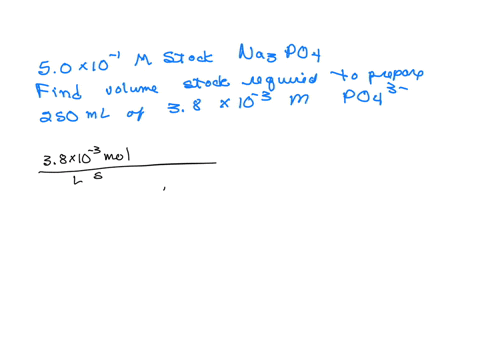 5.0 × 10⁻¹ M Stock Na₃ PO₄
Find volume stock required to prepare
250 mL of 3.8 × 10⁻³ M PO₄³⁻
3.8 × 10⁻³ mol
L S